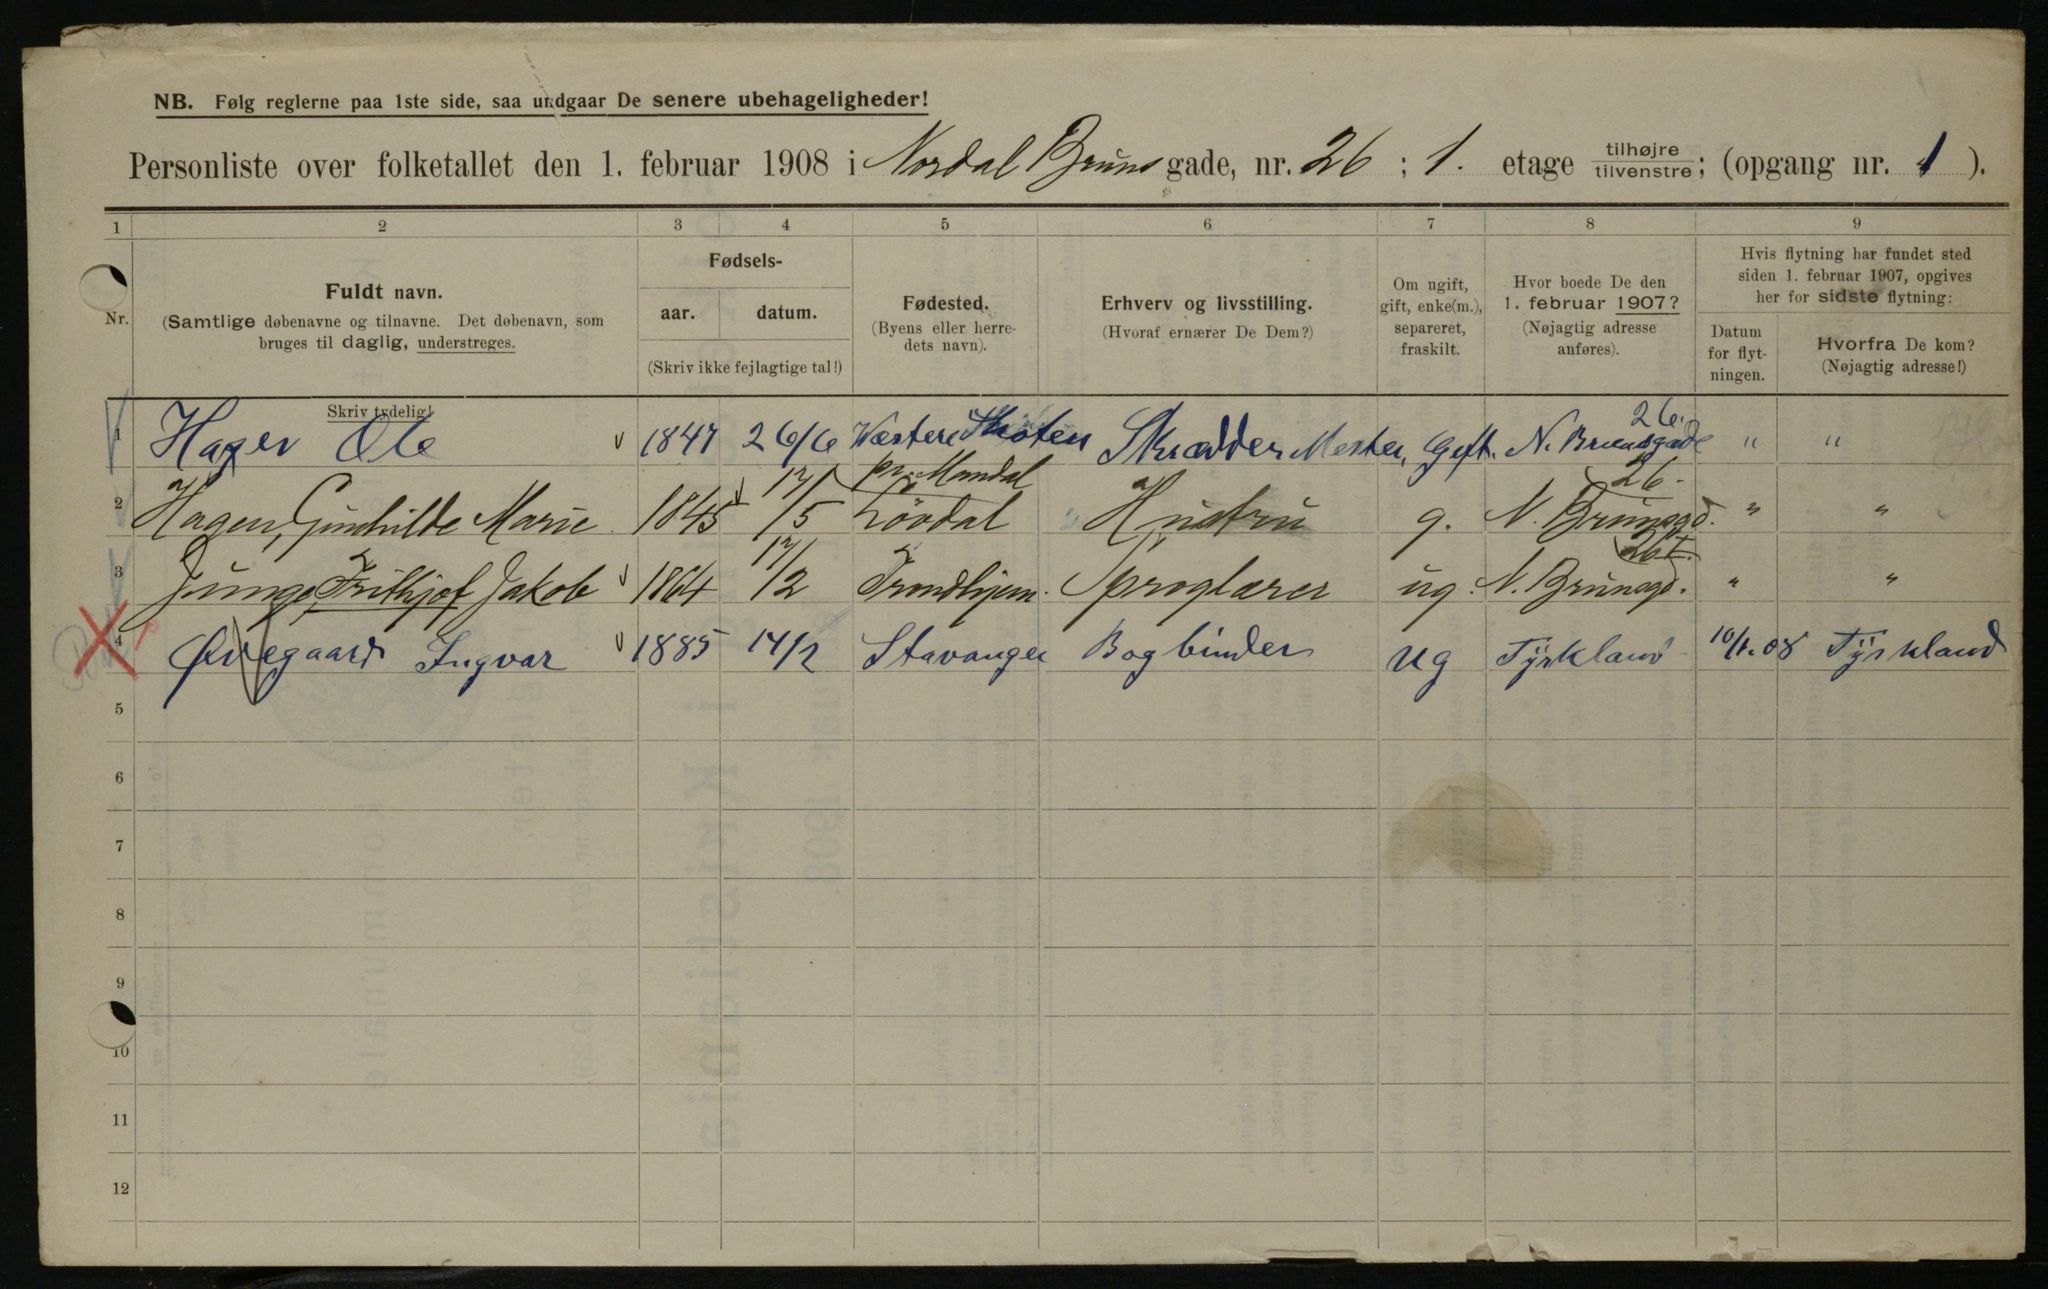 NB. Følg reglerne paa 1ste side, saa undgaar De senere ubehageligheder!
Personliste over folketallet den 1. februar 1908 i Nordal Bruns gade, nr. 26 ; 1. etage tilhøjre tilvenstre ; (opgang nr. 1 ).
1 2 3 4 5 6 7 8 9
Nr.
Fuldt navn.
(Samtlige døbenavne og tilnavne. Det døbenavn, som
bruges til daglig, understreges.
Skriv tydelig!
Fødsels-
aar. datum.
(Skriv ikke fejlagtige tal!)
Fødested.
(Byens eller herre-
dets navn).
Erhverv og livsstilling.
(Hvoraf ernærer De Dem?)
Om ugift,
gift, enke(m.),
separeret,
fraskilt.
Hvor boede De den
1. februar 1907?
(Nøjagtig adresse
anføres).
Hvis flytning har fundet sted
siden 1. februar 1907, opgives
her for sidste flytning:
Datum
for flyt-
ningen.
Hvorfra De kom?
(Nøjagtig adresse!)
1 Hagen Ole 1847 26/6 Western Thoten Skrædder Mester, Gift. N. Brunsgade 26. " "
2 Hagen, Gunhilde Marie 1845 17/5 pr. Mandal Hustru g. N. Brunsgd. 26. " "
3 Junge, Frithjof Jakob 1864 17/2 Trondhjem. Sproglærer ug. N. Brunsgd. " "
4 Øvegaard Ingvar 1885 14/2 Stavanger Bogbinder ug Tÿskland 10/1.08 Tÿskland
5
6
7
8
9
10
11
12